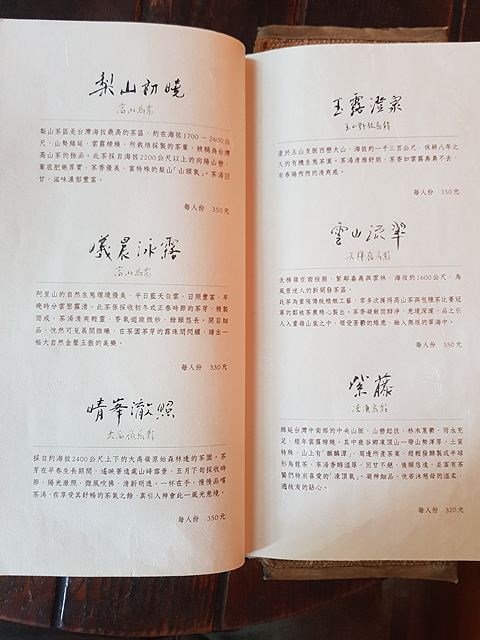 梨山初曉
高山烏龍
梨山茶區是台灣海拔最高的茶區，約在海拔1700－2600公
尺，山勢綿延，雲霧繚繞，所栽培採製的茶葉，被稱為台灣
高山茶的極品。此茶採自海拔2200公尺以上的向陽山巒，
葉底肥嫩厚實，茶香優美，富特殊的梨山「山頭氣」。茶湯回
甘，滋味濃郁豐富。
每人份 350元
曦晨泳霧
高山烏龍
阿里山的自然生態環境優美，平日藍天白雲，日照豐富，早
晚時分雲聚霧湧。此茶係採收初冬或正春時節的茶芽，精製
而成，茶湯清爽輕重，香氣迴旋微妙，餘韻悠長。閉目細
品，恍然可見晨間微曦，在茶園茶芽的露珠間閃耀，譜出一
幅大自然金聲玉振的美樂。
每人份 330元
晴峯澈照
大禹嶺烏龍
採自約海拔2400公尺上下的大禹嶺原始森林邊的茶園。茶
芽在早春生長期間，遙映著遠處山峰雪景，五月下旬採收時
節，陽光澈照，微風吹拂，清新明透。一杯在手，慢慢品嚐
茶湯，在享受其舒暢的茶氣之餘，真引人神會此一風光意境。
每人份 350元
玉露澄泉
玉山野放烏龍
產於玉山支脈西巒大山，海拔約一千三百公尺，休耕八年之
久的有機生態茶園。茶湯清雅舒朗，茶香如雲霧裊裊不去，
有春陽煦煦的清爽感。
每人份 350元
雲山流翠
天梯烏龍
天梯嶺在南投縣，緊鄰嘉義與雲林，海拔約1600公尺，為
風景迷人的新開發茶區。
此茶為重複傳統精緻工藝，常多次獲得高山茶與凍頂茶比賽冠
軍的鄒姓茶農精心製出。茶香凝斂而醇淨，意境深遠，品之引
人入重嶺山氣之中，領受茶鬱的雄意，融入無垠的軍海中。
每人份 350元
紫藤
凍頂烏龍
綿延台灣中南部的中央山脈，山巒起伏，林木蓊鬱，雨水充
足，經年雲霧繚繞。其中鹿谷鄉凍頂山一帶山勢渾厚，土質
特殊，山上有「麒麟潭」，周邊所產茶葉，經輕發酵製成半球
形烏龍茶，茶湯香醇溫厚，回甘不絕，後韻悠遠，並富有茶
饕們特別喜愛的「凍頂氣」。凝神細品，恍若沐慈母的溫柔，
遇故友的貼心。
每人份 320元